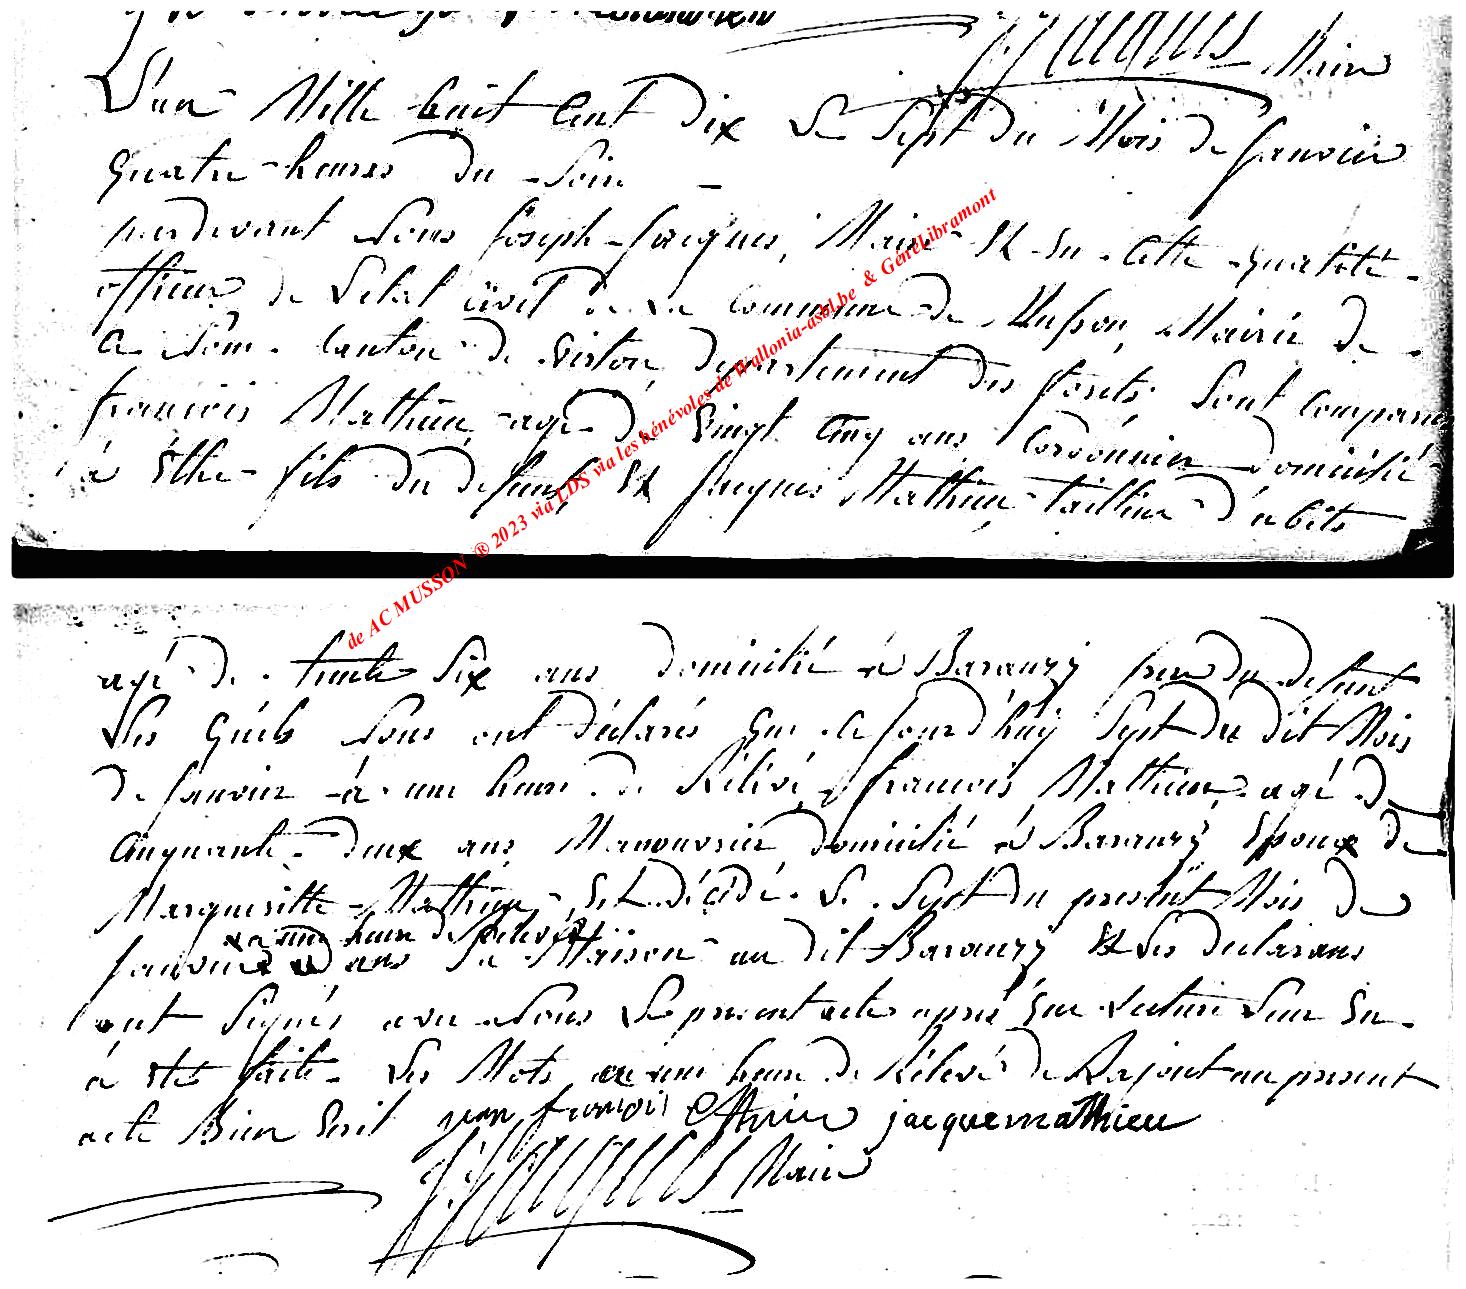 Maire
L'an Mille huit Cent dix Le Sept du Mois de Janvier
quatre heures du Soir
pardevant Nous Joseph Jacques, Maire Et En Cette qualité
officier de Letat Civil de La Commune de Musson, Mairie de
Ce Nom Canton de Virton, departement des forets Sont Comparus
francois Mathieu agé de Vingt Cinq ans Cordonnier domicilié
à Ethe fils du defunt, Et Jacques Mathieu tailleur d'abits
agé de trente Six ans domicilié à Baranzy frere du defunt
Les quels Nous ont déclarés que Ce Jourd'huy Sept du dit Mois
de Janvier à une heure de Rélévé, francois Mathieu agé de
Cinquante deux ans Manouvrier domicilié à Baranzy Epoux de
Margueritte Mathieu, Est décédé Le Sept du present Mois de
a une heure de relevé
Janvier dans Sa Maison au dit Baranzy Et Les declarans
ont Signés avec Nous Le present acte aprés que Lecture Leur En
à Eté faite Les Mots a une heure de Rélevé de Rajout au present
acte Bien Ecrit jean françois jacque mathieu
J J Jacques Maire
de AC MUSSON ® 2023 via LDS via les bénévoles de Wallonia-asbl.be & GénéLibramont